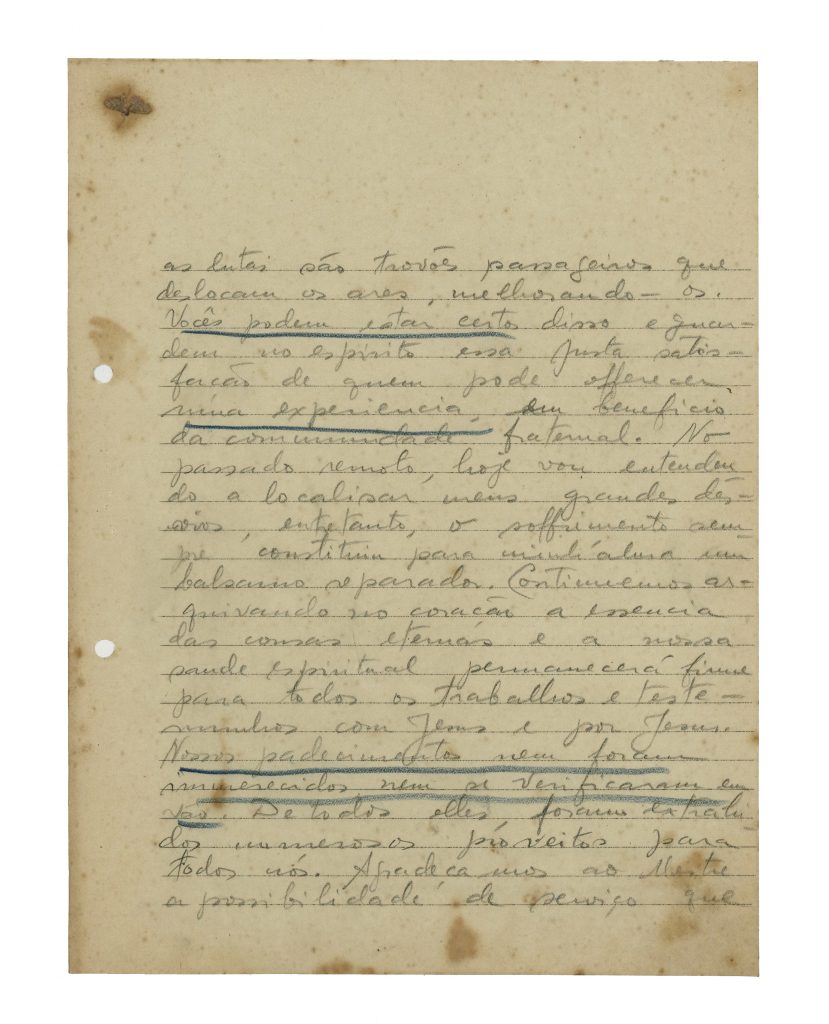 as lutas são trovões passageiros que
deslocam os ares, melhorando-os.
Vocês podem estar certos disso e guar-
dem no espirito essa justa satis-
facção de quem pode offerecer
uma experiencia, em beneficio
da communidade fraternal. No
passado remoto, hoje vou entenden
do a localisar meus grandes des-
vios, entretanto, o soffrimento sem
pre constituiu para minh'alma um
balsamo reparador. Continuemos ar-
quivando no coração a essencia
das cousas eternas e a nossa
saude espiritual permanecerá firme
para todos os trabalhos e teste-
munhos com Jesus e por Jesus.
Nossos padecimentos nem foram
immerecidos nem se verificaram em
vão. De todos elles, foram extrahi
dos numerosos proveitos para
todos nós. Agradeçamos ao Mestre
a possibilidade de serviço que